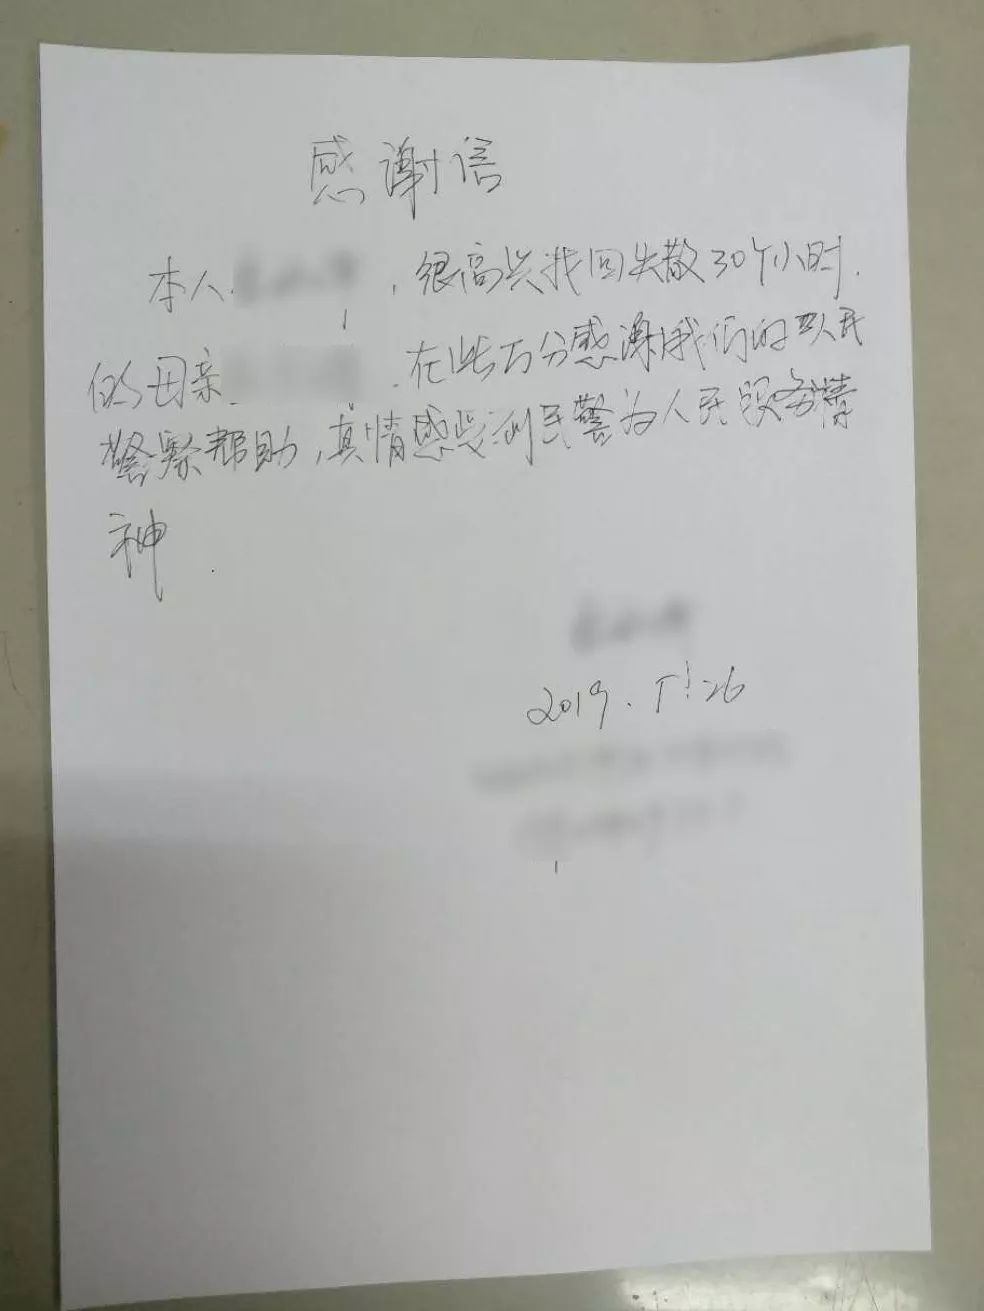 感谢信
本人，很高兴找回失散30个小时.
的母亲.在此万分感谢我们的人民
警察帮助,真情感受到民警为人民服务精
神.
2019.5.26